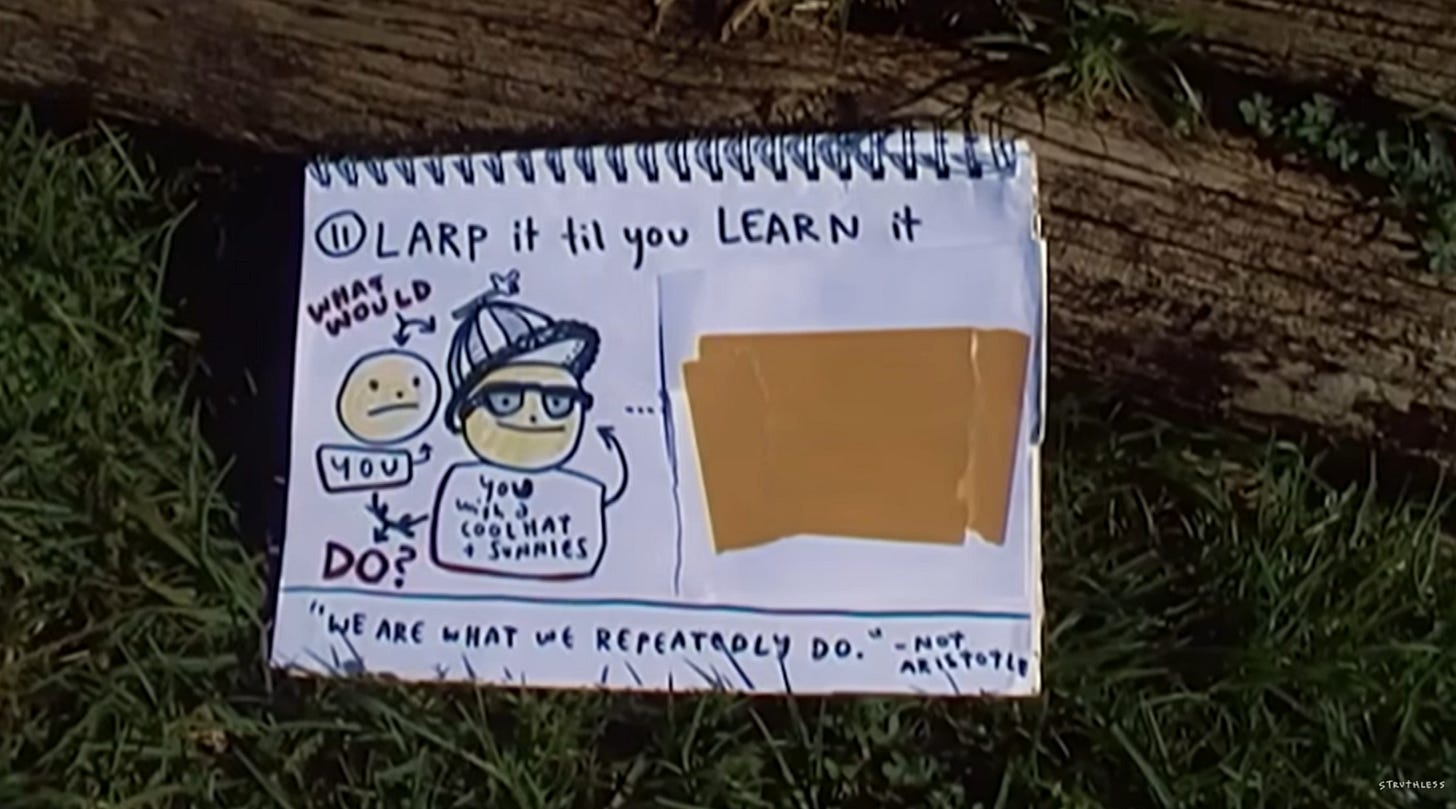 ⑪ LARP it til you LEARN it
WHAT
WOULD
YOU
YOU
with a
COOL HAT
+ SUNNIES
DO?
...
"WE ARE WHAT WE REPEATEDLY DO." -NOT
ARISTOTLE
STRUTHLESS